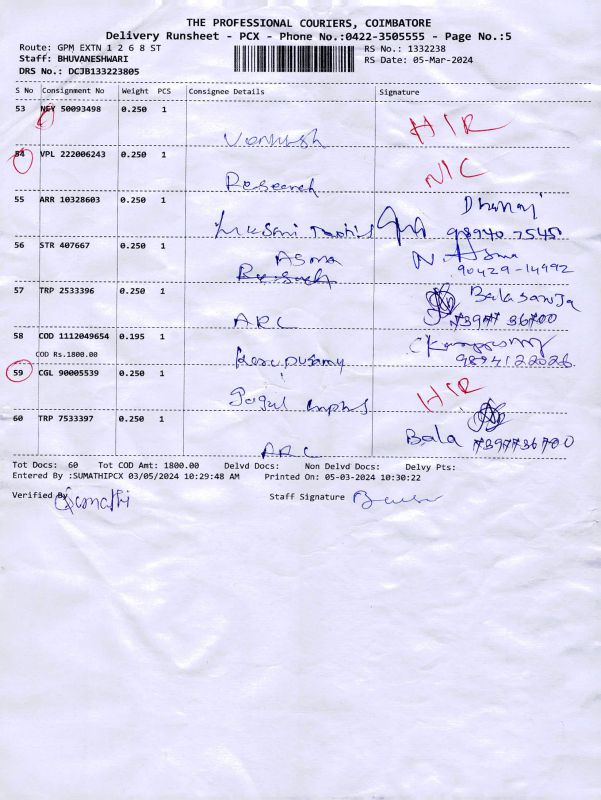 THE PROFESSIONAL COURIERS, COIMBATORE
Delivery Runsheet - PCX - Phone No.:0422-3505555 - Page No.:5
Route: GPM EXTN 1 2 6 8 ST RS No.: 1332238
Staff: BHUVANESHWARI RS Date: 05-Mar-2024
DRS No.: DCJB133223805
S No Consignment No Weight PCS Consignee Details Signature
53 NEY 50093498 0.250 1 H/R
54 VPL 222006243 0.250 1 N/C
Research
55 ARR 10328603 0.250 1 Dhanaj
98940 7545
56 STR 407667 0.250 1 ASMA N. Asma
90429-14992
57 TRP 2533396 0.250 1 Balasanja
ARC 73977 36700
58 COD 1112049654 0.195 1
COD Rs.1800.00 9894122026
59 CGL 90005539 0.250 1 H/R
60 TRP 7533397 0.250 1
ARC Bala 7397736700
Tot Docs: 60 Tot COD Amt: 1800.00 Delvd Docs: Non Delvd Docs: Delvy Pts:
Entered By :SUMATHIPCX 03/05/2024 10:29:48 AM Printed On: 05-03-2024 10:30:22
Verified By Sumathi Staff Signature